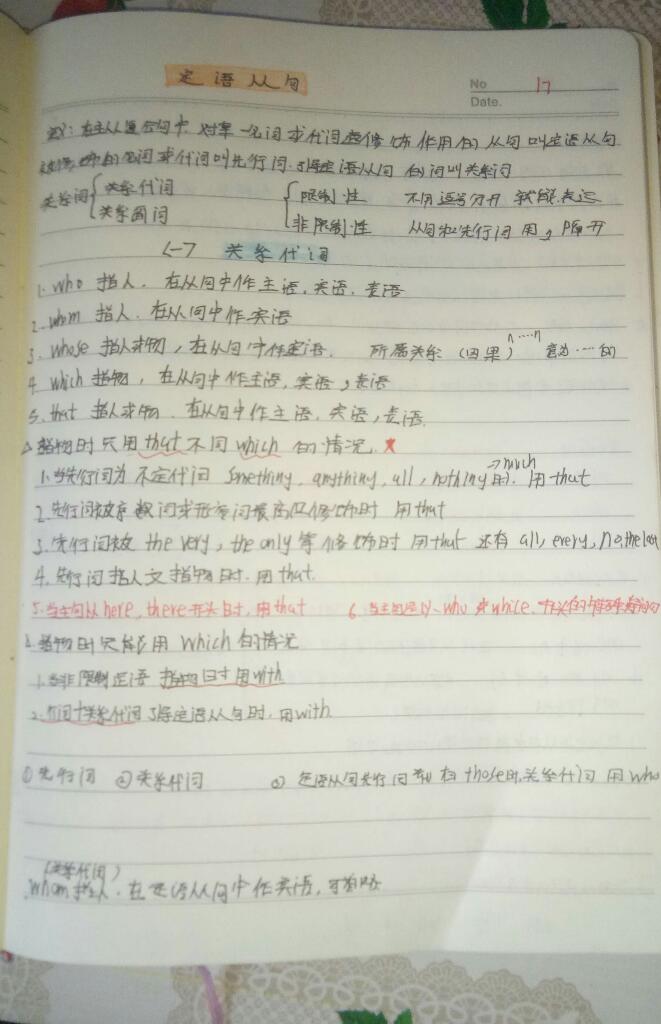 定语从句
No 17
Date.
定义:在主从复合句中,对某一名词或代词起修饰作用的从句叫定语从句
被修饰的名词或代词叫先行词.引导定语从句的词叫关系词
关系词 关系代词 限制性 不用逗号分开
关系副词 非限制性 从句和先行词用,隔开
<一> 关系代词
1. who 指人. 在从句中作主语,宾语,表语
2. whom 指人. 在从句中作宾语
3. whose 指人或物,在从句中作定语. 所属关系 n....n 意为…的
4. which 指物,在从句中作主语,宾语,表语
5. that 指人或物. 在从句中作主语,宾语,表语.
△指物时只用that不用which的情况.★
1.当先行词为不定代词 Something, anything, all, nothing →much 时. 用that
2.先行词被序数词或形容词最高级修饰时 用that
3.先行词被 the very, the only 等修饰时 用that 还有 all, every, no,
4. 先行词指人又指物时.用that.
5.当主句从here, there开头时,用that 6. 当主句是以-who 或 while.
△指物时只能用 which的情况
1.当非限制定语 指物时用with
2.介词+关系代词引导定语从句时,用with
①先行词 ②关系代词 ③ 定语从句先行词 those时,关系代词 用who
(关系代词)
whom指人.在定语从句中作宾语,可省略